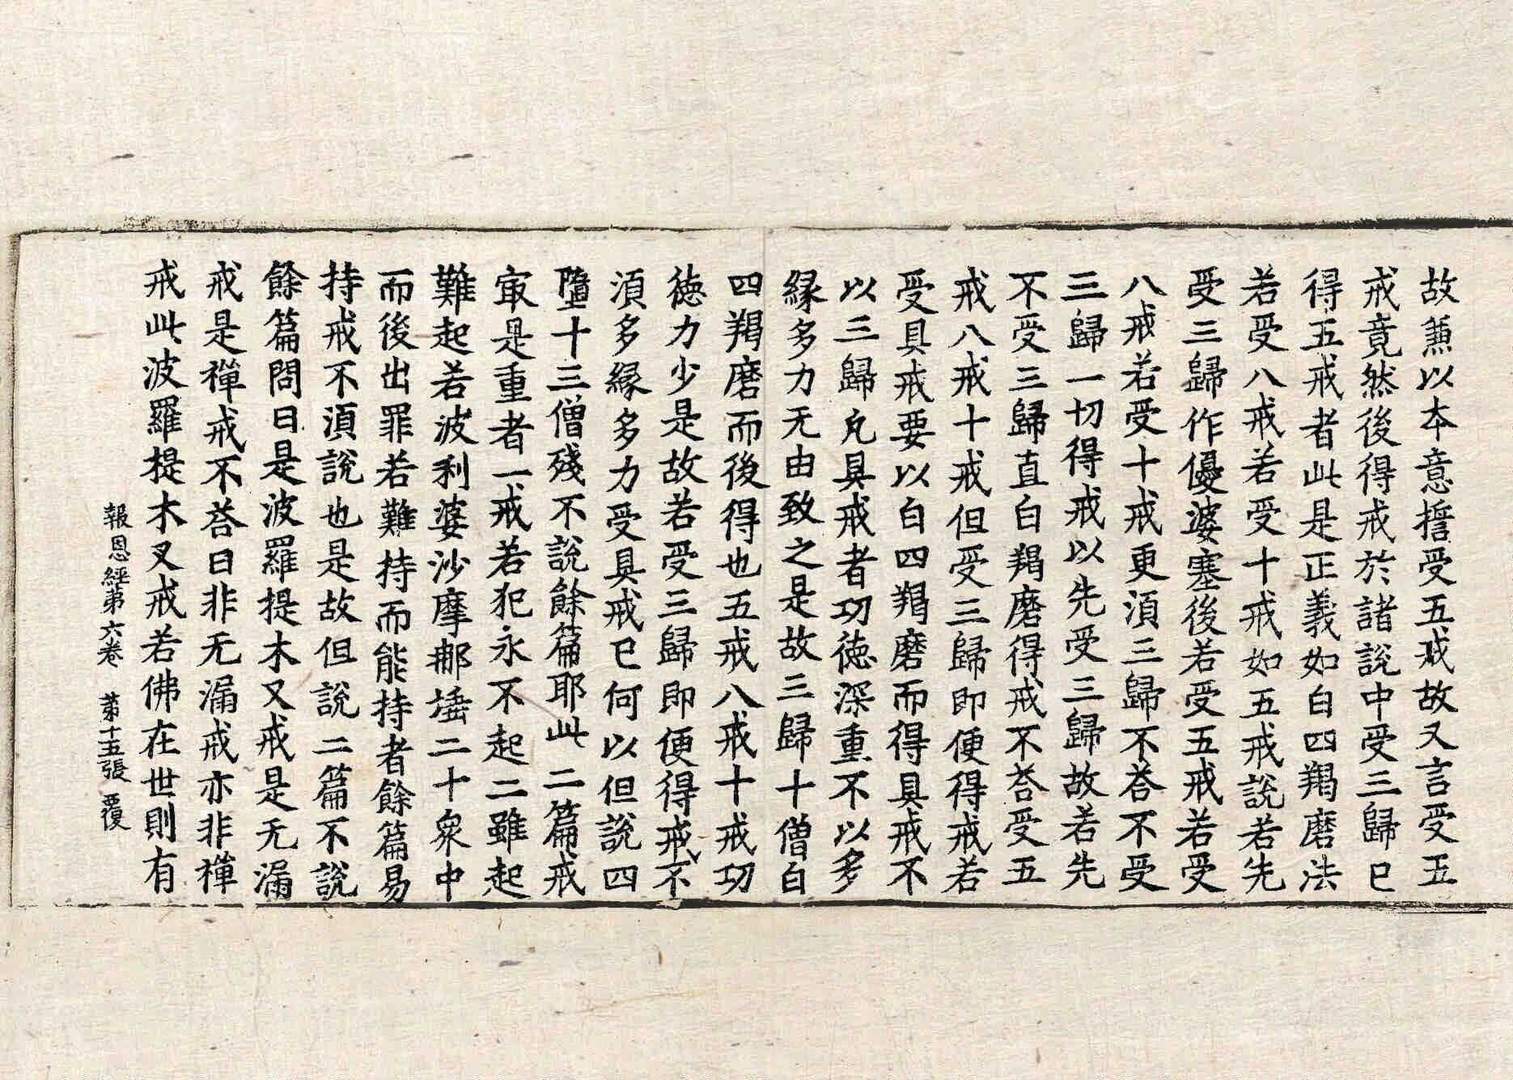 故兼以本意擔受五戒故又言受五
戒竟然後得戒於諸說中受三歸已
得五戒者此是正義如白四羯磨法
若受八戒若受十戒如五戒說若先
受三歸作優婆塞後若受五戒若受
八戒若受十戒更湏三歸不荅不受
三歸一切得戒以先受三歸故若先
不受三歸直白羯磨得戒不荅受五
戒八戒十戒但受三歸即便得戒若
受具戒要以白四羯磨而得具戒不
以三歸凢具戒者功徳深重不以多
縁多力无由致之是故三歸十僧白
四羯磨而後得也五戒八戒十戒功
徳力少是故若受三歸即便得戒不
湏多縁多力受具戒已何以但說四
墮十三僧殘不說餘篇耶此二篇戒
㝡是重者一戒若犯永不起二雖起
難起若波利婆沙摩郍埵二十衆中
而後出罪若難持而能持者餘篇易
持戒不湏說也是故但說二篇不說
餘篇問曰是波羅提木叉戒是无漏
戒是禪戒不荅曰非无漏戒亦非禪
戒此波羅提木叉戒若佛在世則有
報恩經第六卷 苐十五張 覆